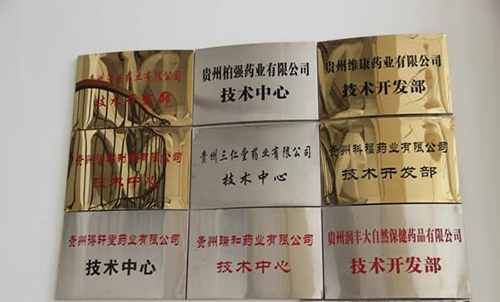 药业有限公司
技术开发部
贵州柏强药业有限公司
技术中心
贵州维康药业有限公司
技术开发部
贵州
药业有限公司
技术中心
贵州三仁堂药业有限公司
技术中心
贵州科福药业有限公司
技术开发部
贵州得轩堂药业有限公司
技术中心
贵州瑞和药业有限公司
技术中心
贵州润丰大自然保健药品有限公司
技术开发部